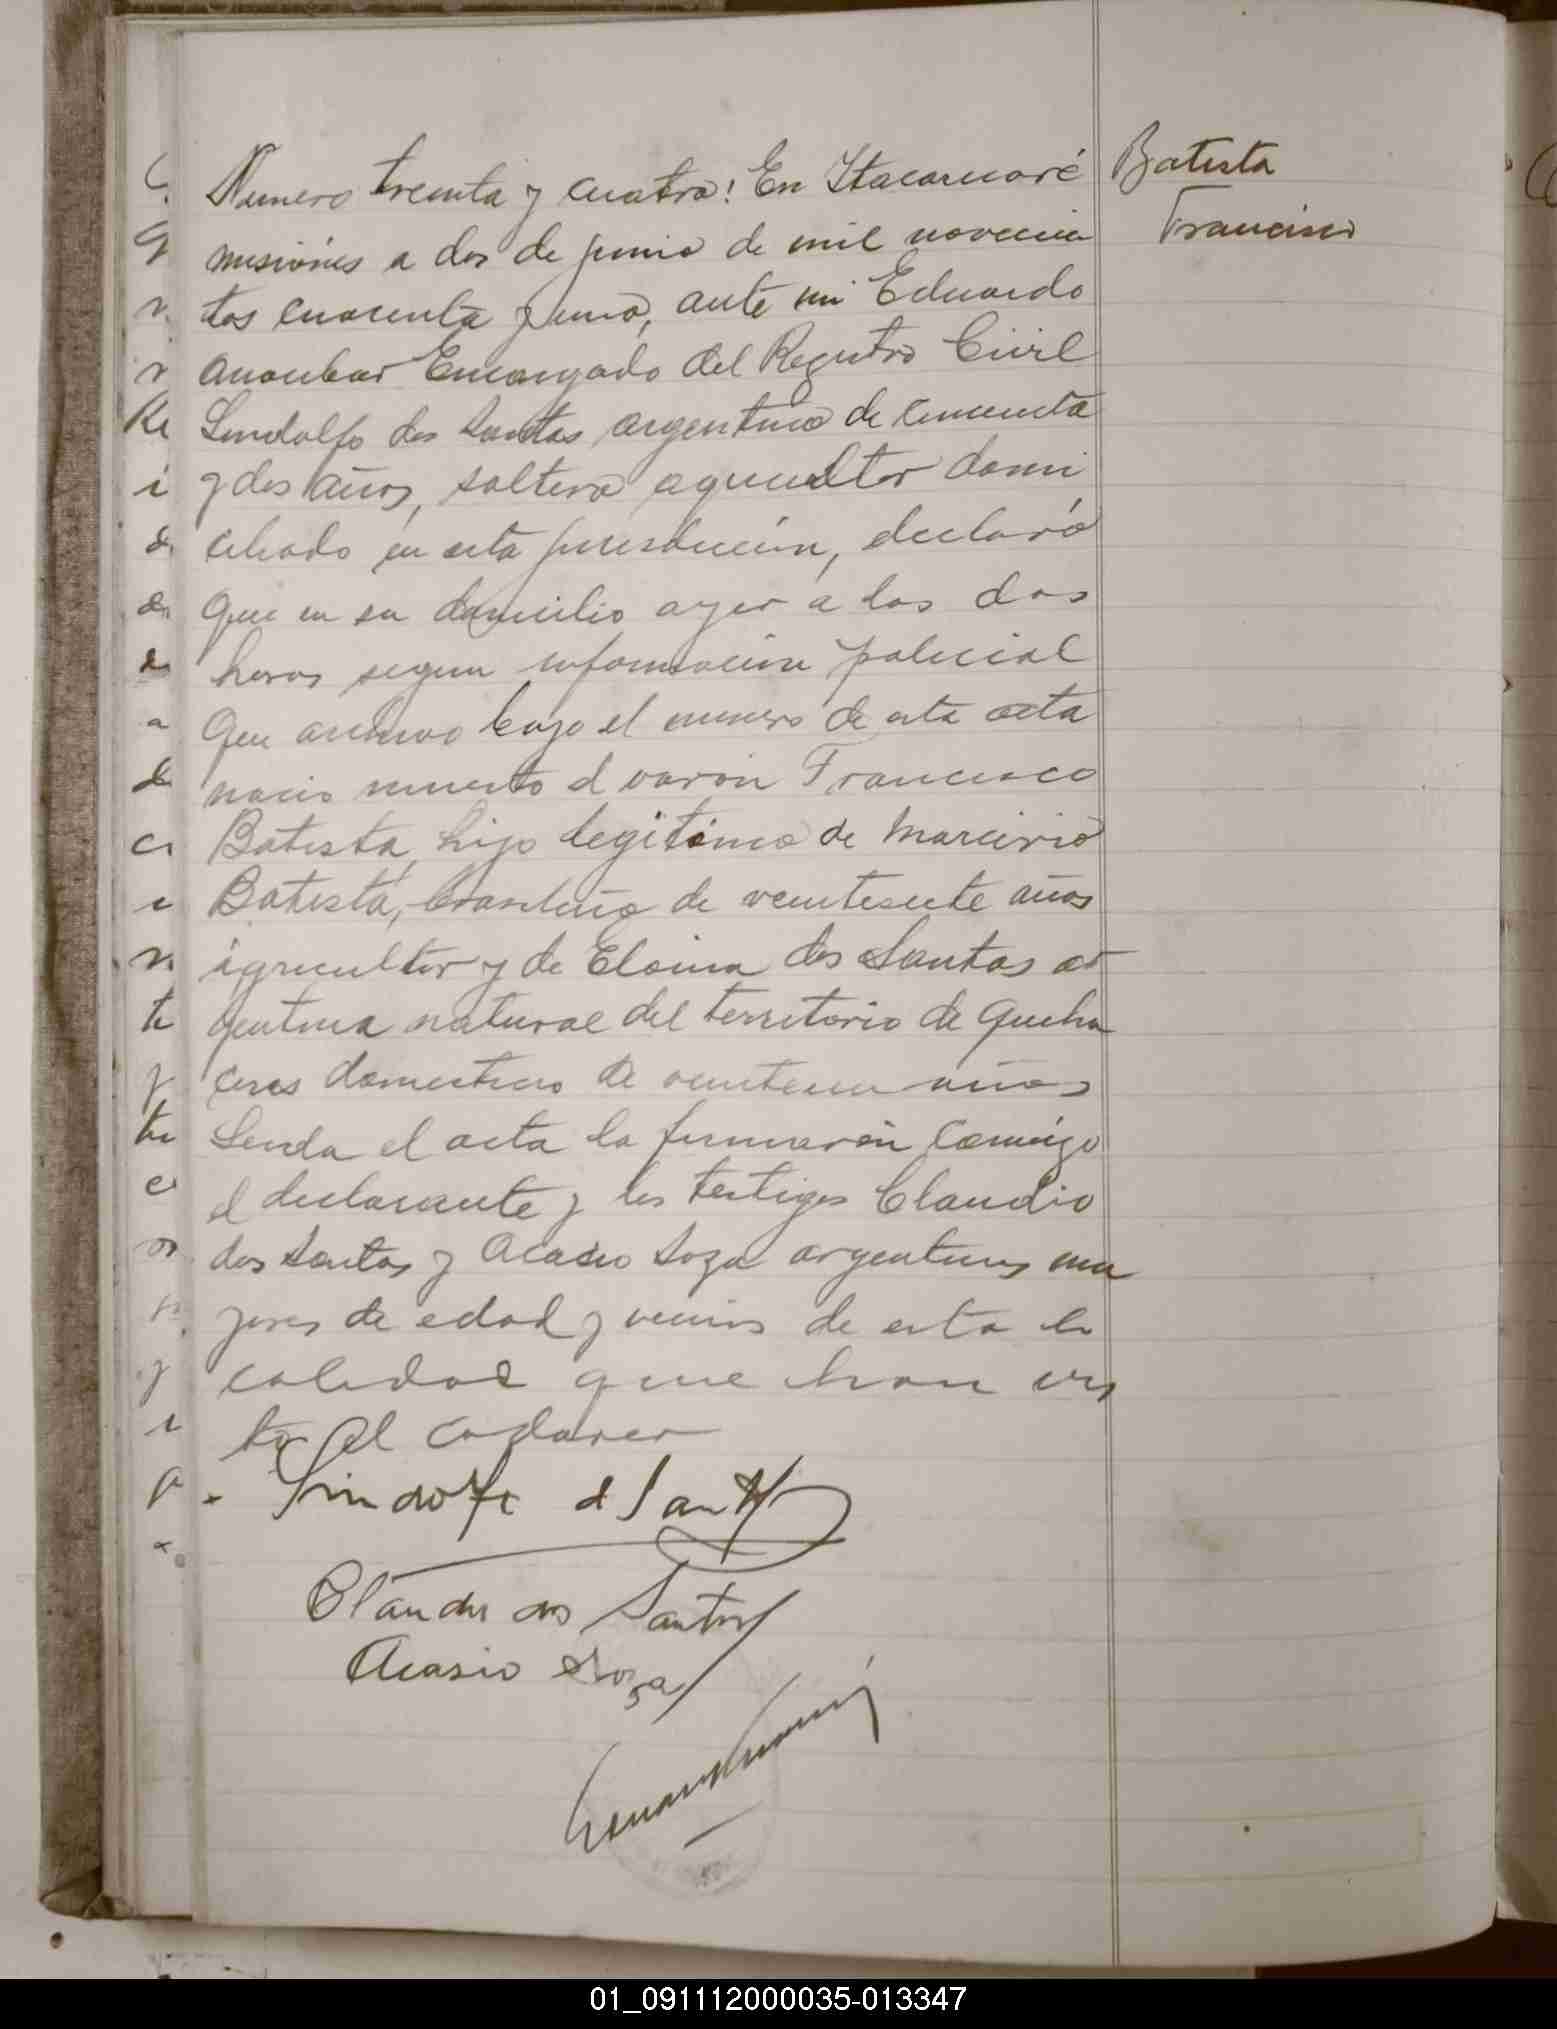 Numero treinta y cuatro: En Itacaruaré
misiónes a dos de junio de mil novecien
tos cuarenta y uno, ante mi Eduardo
Encargado del Registro Civil
Lindolfo dos Santos argentino de cincuenta
y dos años, soltero agricultor domi
ciliado en esta jurisdicción, declaró
Que en su domicilio ayer a las dos
horas segun información policial
Que archivo bajo el numero de esta acta
nacio muerto el varon Francisco
Batista, hijo legitimo de Marcirio
Batista, brasileño de veintesiete años
agricultor y de Eloina dos Santos ar
gentina natural del territorio de Queha
ceres domesticos de años
Leida el acta la firmarón comigo
el declarante y los testigos Claudio
dos Santos y Acasio Soza argentinos ma
yores de edad y vecinos de esta lo
calidad que han vis
to el cadaver
Lindolfo d Santos
Claudio dos Santos
Acasio Soza
Batista
Francisco
01_091112000035-013347